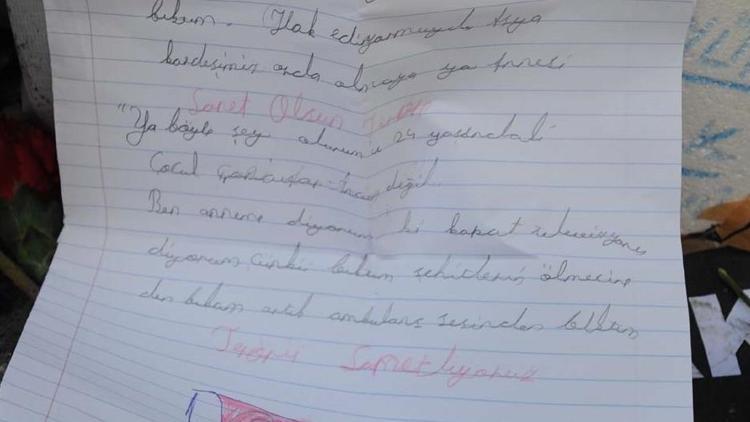 bıktım. Hak ediyormuydu Asya
kardeşimiz orda olmaya ya Annesi
Lanet Olsun Terör
"Ya böyle şey olurmu 24 yaşındaki
Çocuk değil.
Ben anneme diyorum ki kapat televizyonu
diyorum Çünkü bıktım şehitlerin ölmesine
den bıktım artık ambulans sesinden bıktım
Terörü Lanetliyoruz